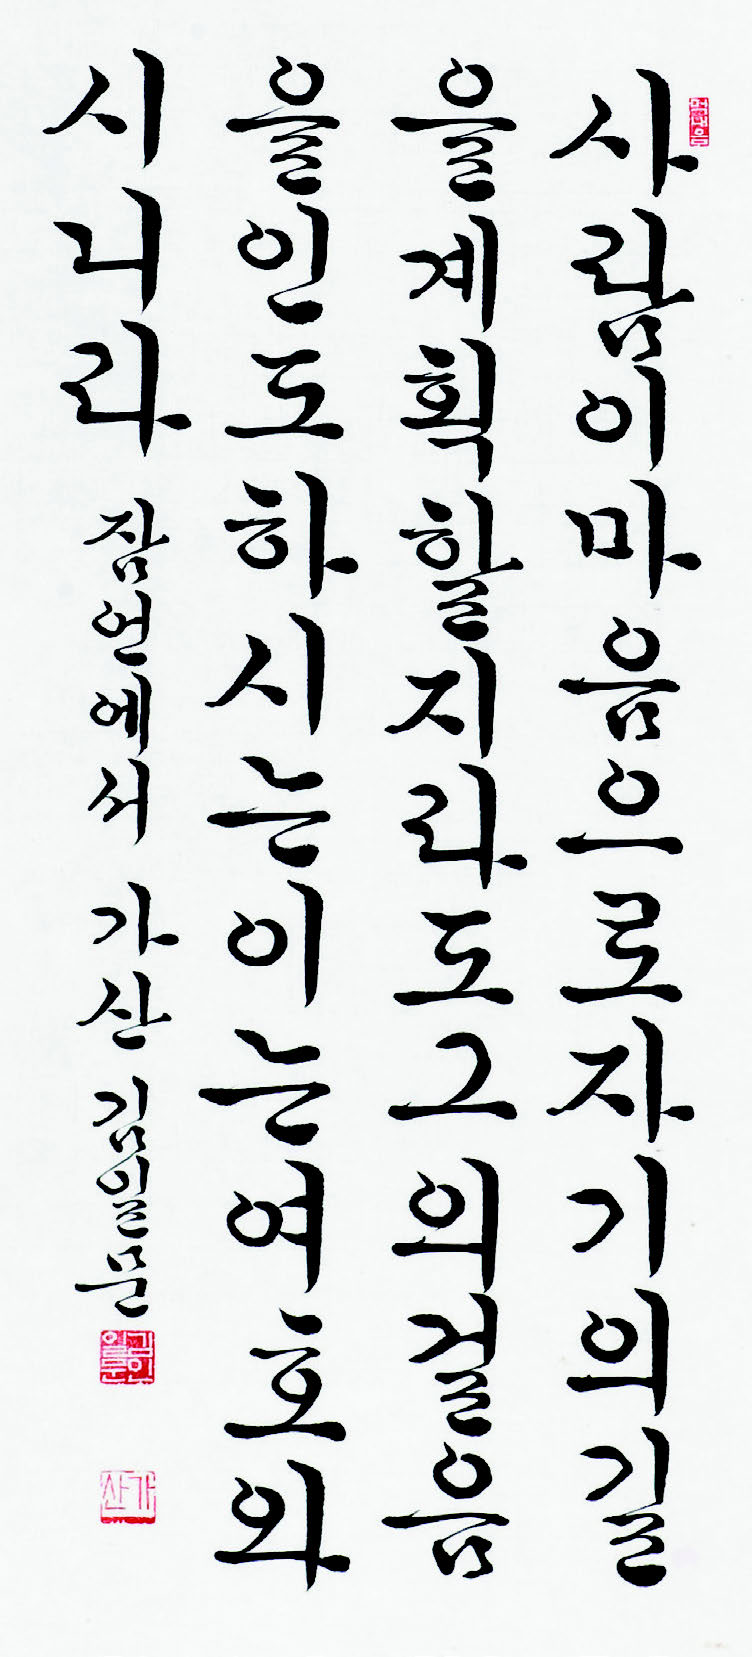 사람이마음으로자기의길
을계획할지라도그의걸음
을인도하시는이는여호와
시니라 잠언에서 가산 김일문
김일문
가산